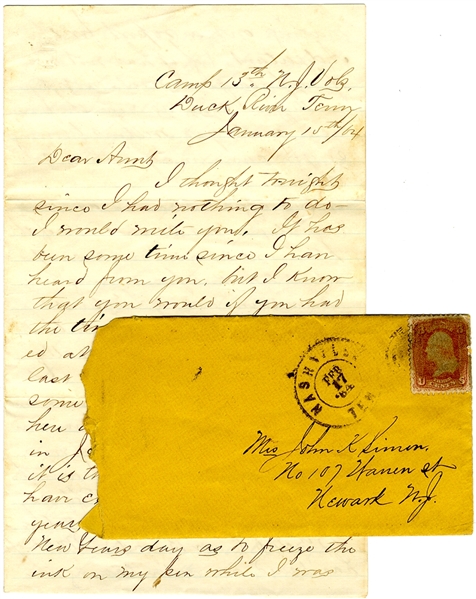 Camp 13th N.J. Vols.
Duck River Tenn
January 15th/64
Dear Aunt
I thought tonight
since I had nothing to do
I would write you. It has
been some time since I have
heard from you, but I know
that you would if you had
the
ed at
last
some
here
in
it is
have
years
New Years day as to freeze the
ink on my pen while I was
NASHVILLE
TEN
FEB
17
'64
U S
Mrs John K. Simon.
No 107 Warren st
Newark N.J.